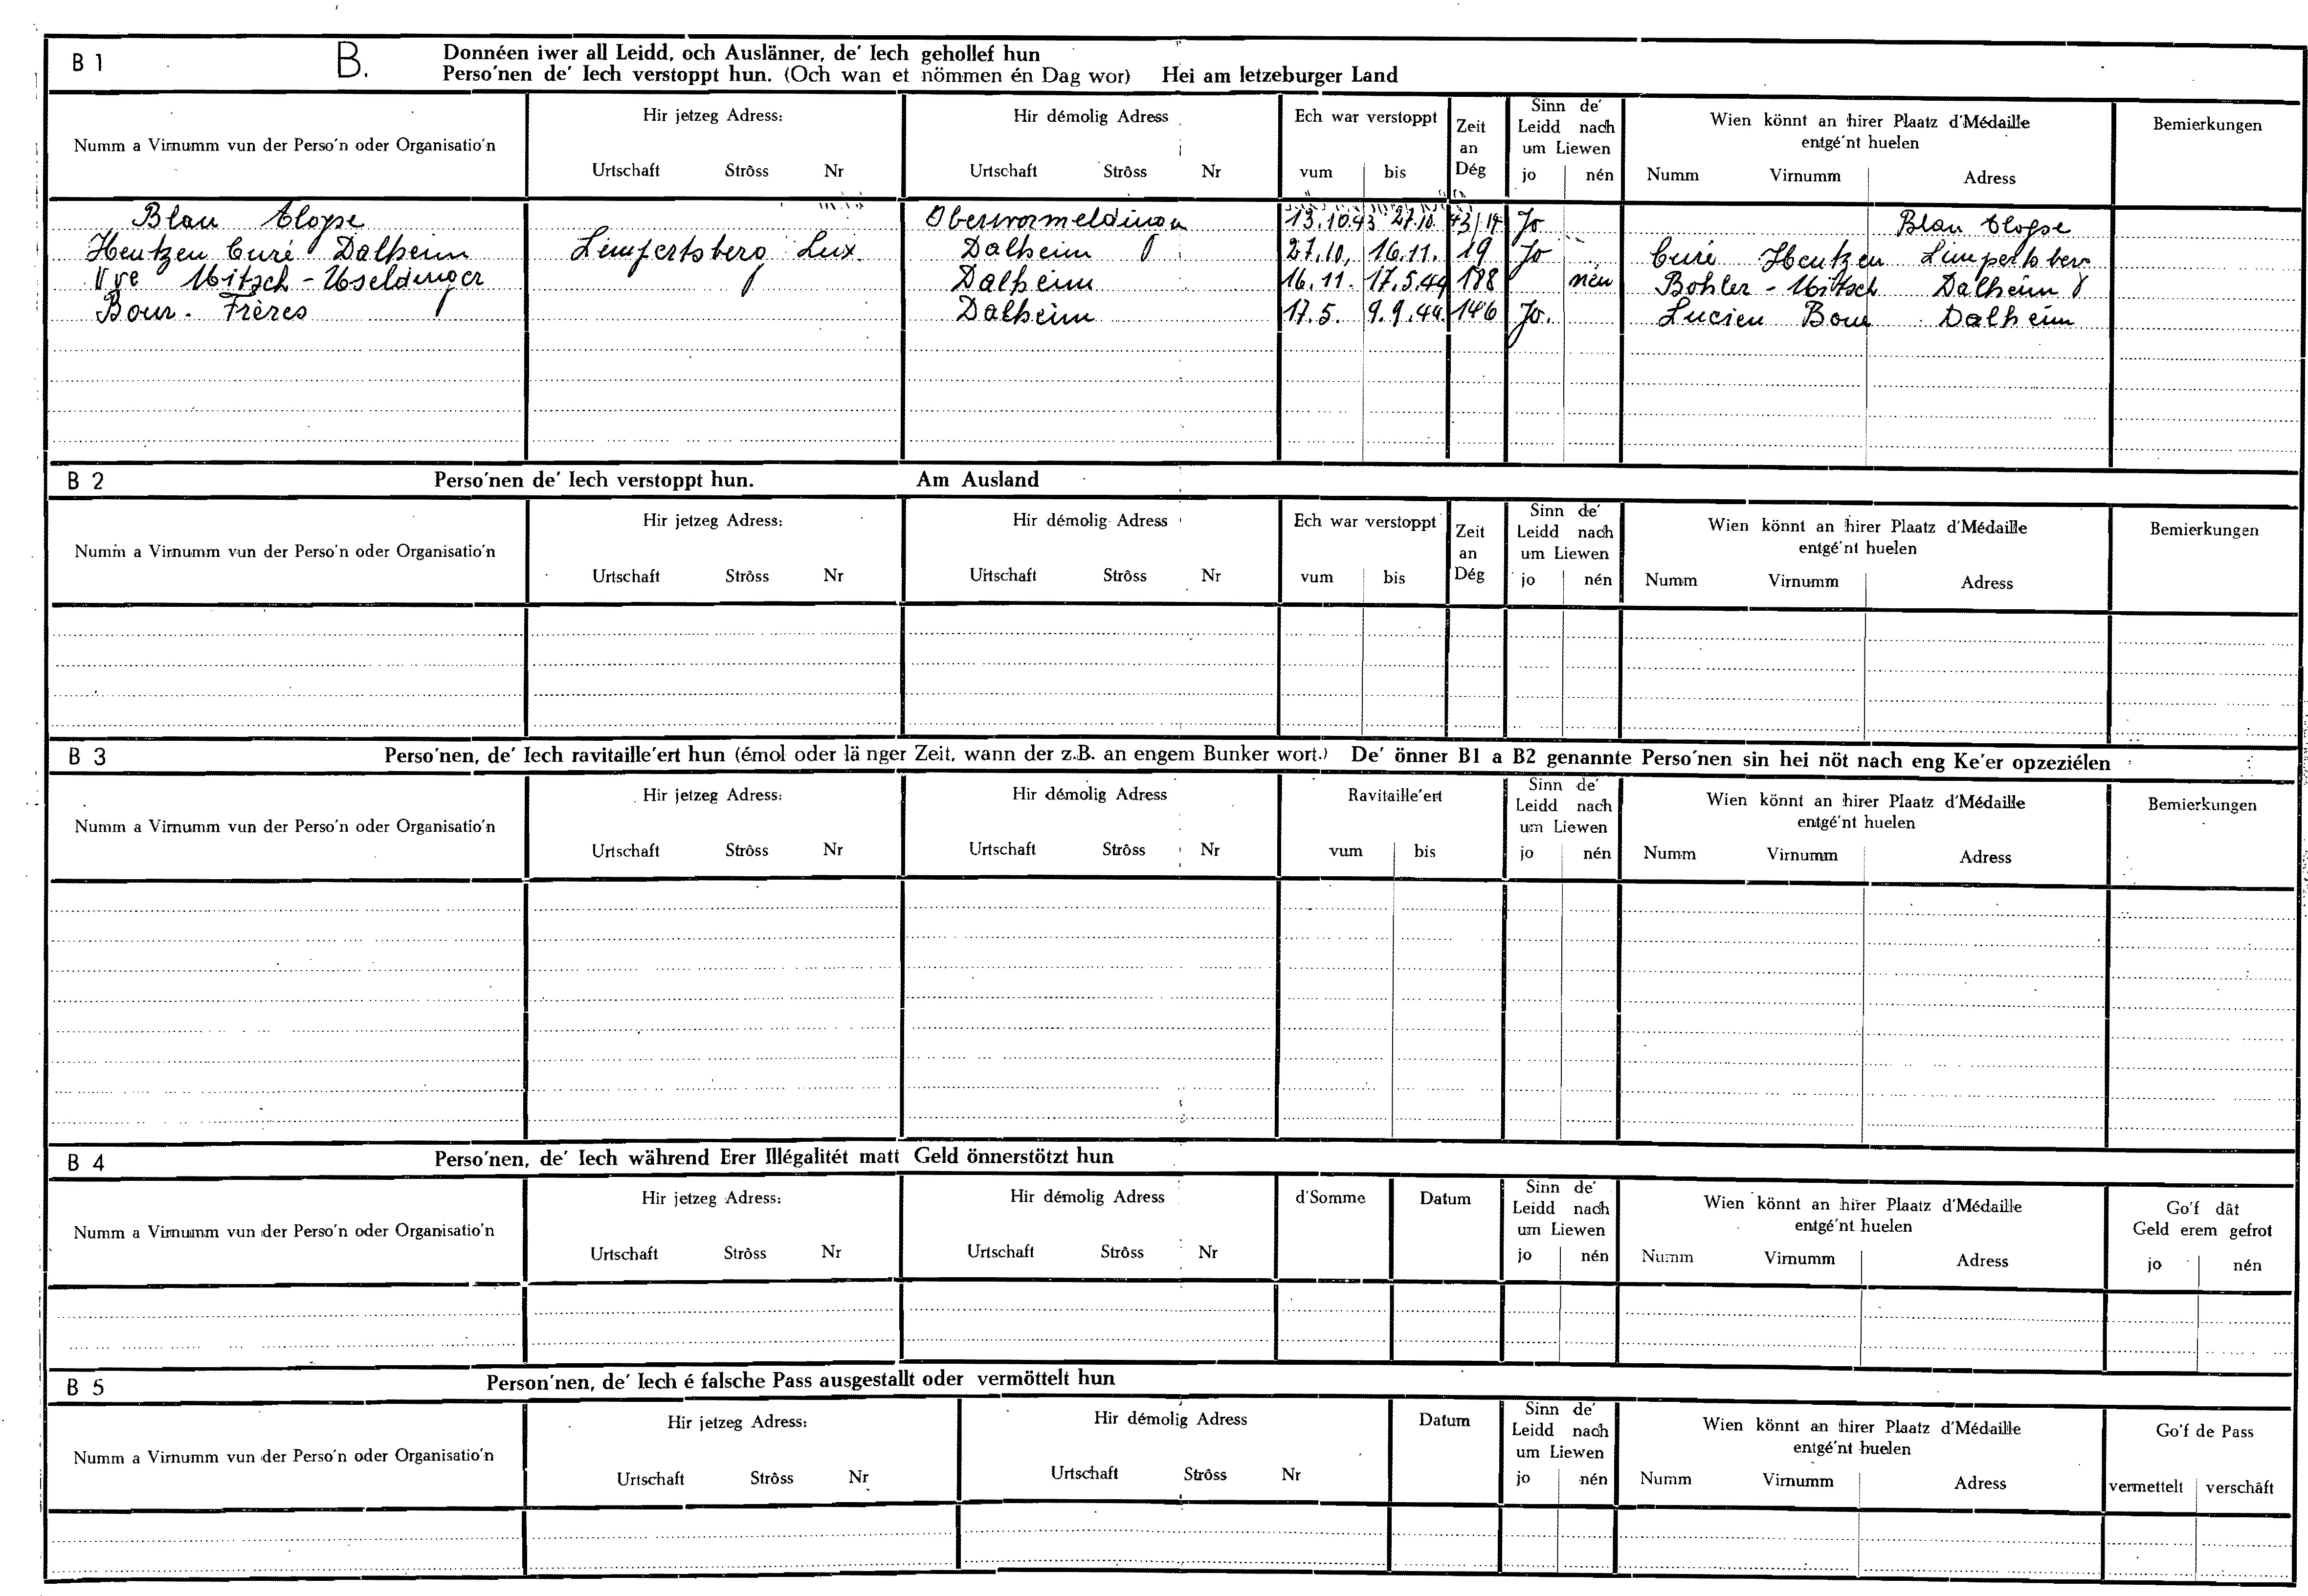 B 1 B. Donnéen iwer all Leidd, och Auslänner, de' Iech gehollef hun
Perso'nen de' Iech verstoppt hun. (Och wan et nömmen én Dag wor) Hei am letzeburger Land
Numm a Virnumm vun der Perso'n oder Organisatio'n
Hir jetzeg Adress:
Urtschaft Strôss Nr
Hir démolig Adress
Urtschaft Strôss Nr
Ech war verstoppt
vum bis
Zeit
an
Dég
Sinn de'
Leidd nach
um Liewen
jo nén
Wien könnt an hirer Plaatz d'Médaille
entgé'nt huelen
Numm Virnumm Adress
Bemierkungen
Blau 13.10.43 27.10. 43/14 Jo Blau
Hentzen Curé Dalheim Limpertsberg Lux. Dalheim 27.10. 16.11. 19 Jo Curé Hentzen Limpertsberg
Vve Mitsch-Useldinger Dalheim 16.11. 17.5.44 188 nén Bohler-Mitsch Dalheim
Bour. Frères Dalheim 17.5. 9.9.44. 146 Jo. Lucien Bour Dalheim
B 2 Perso'nen de' Iech verstoppt hun. Am Ausland
Numm a Virnumm vun der Perso'n oder Organisatio'n
Hir jetzeg Adress:
Urtschaft Strôss Nr
Hir démolig Adress
Urtschaft Strôss Nr
Ech war verstoppt
vum bis
Zeit
an
Dég
Sinn de'
Leidd nach
um Liewen
jo nén
Wien könnt an hirer Plaatz d'Médaille
entgé'nt huelen
Numm Virnumm Adress
Bemierkungen
B 3 Perso'nen, de' Iech ravitaille'ert hun (émol oder lä nger Zeit, wann der z.B. an engem Bunker wort.) De' önner B1 a B2 genannte Perso'nen sin hei nöt nach eng Ke'er opzeziélen
Numm a Virnumm vun der Perso'n oder Organisatio'n
Hir jetzeg Adress:
Urtschaft Strôss Nr
Hir démolig Adress
Urtschaft Strôss Nr
Ravitaille'ert
vum bis
Sinn de'
Leidd nach
um Liewen
jo nén
Wien könnt an hirer Plaatz d'Médaille
entgé'nt huelen
Numm Virnumm Adress
Bemierkungen
B 4 Perso'nen, de' Iech während Erer Illégalitét matt Geld önnerstötzt hun
Numm a Virnumm vun der Perso'n oder Organisatio'n
Hir jetzeg Adress:
Urtschaft Strôss Nr
Hir démolig Adress
Urtschaft Strôss Nr
d'Somme
Datum
Sinn de'
Leidd nach
um Liewen
jo nén
Wien könnt an hirer Plaatz d'Médaille
entgé'nt huelen
Numm Virnumm Adress
Go'f dât
Geld erem gefrot
jo nén
B 5 Person'nen, de' Iech é falsche Pass ausgestallt oder vermöttelt hun
Numm a Virnumm vun der Perso'n oder Organisatio'n
Hir jetzeg Adress:
Urtschaft Strôss Nr
Hir démolig Adress
Urtschaft Strôss Nr
Datum
Sinn de'
Leidd nach
um Liewen
jo nén
Wien könnt an hirer Plaatz d'Médaille
entgé'nt huelen
Numm Virnumm Adress
Go'f de Pass
vermettelt verschâft